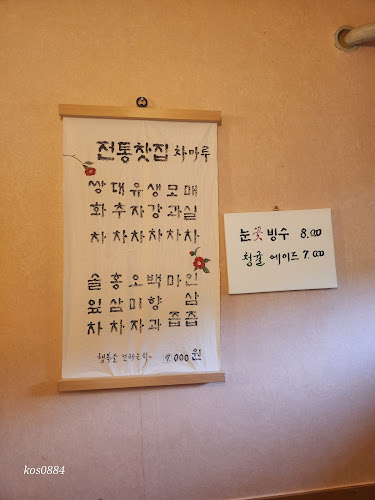 전통찻집 차마루
쌍화차
대추차
유자차
생강차
모과차
매실차
솔잎차
홍삼차
오미자
백향과
마즙
인삼즙
행복을 7.000원
눈꽃 빙수 8.000
청귤 에이드 7.000
kos0884